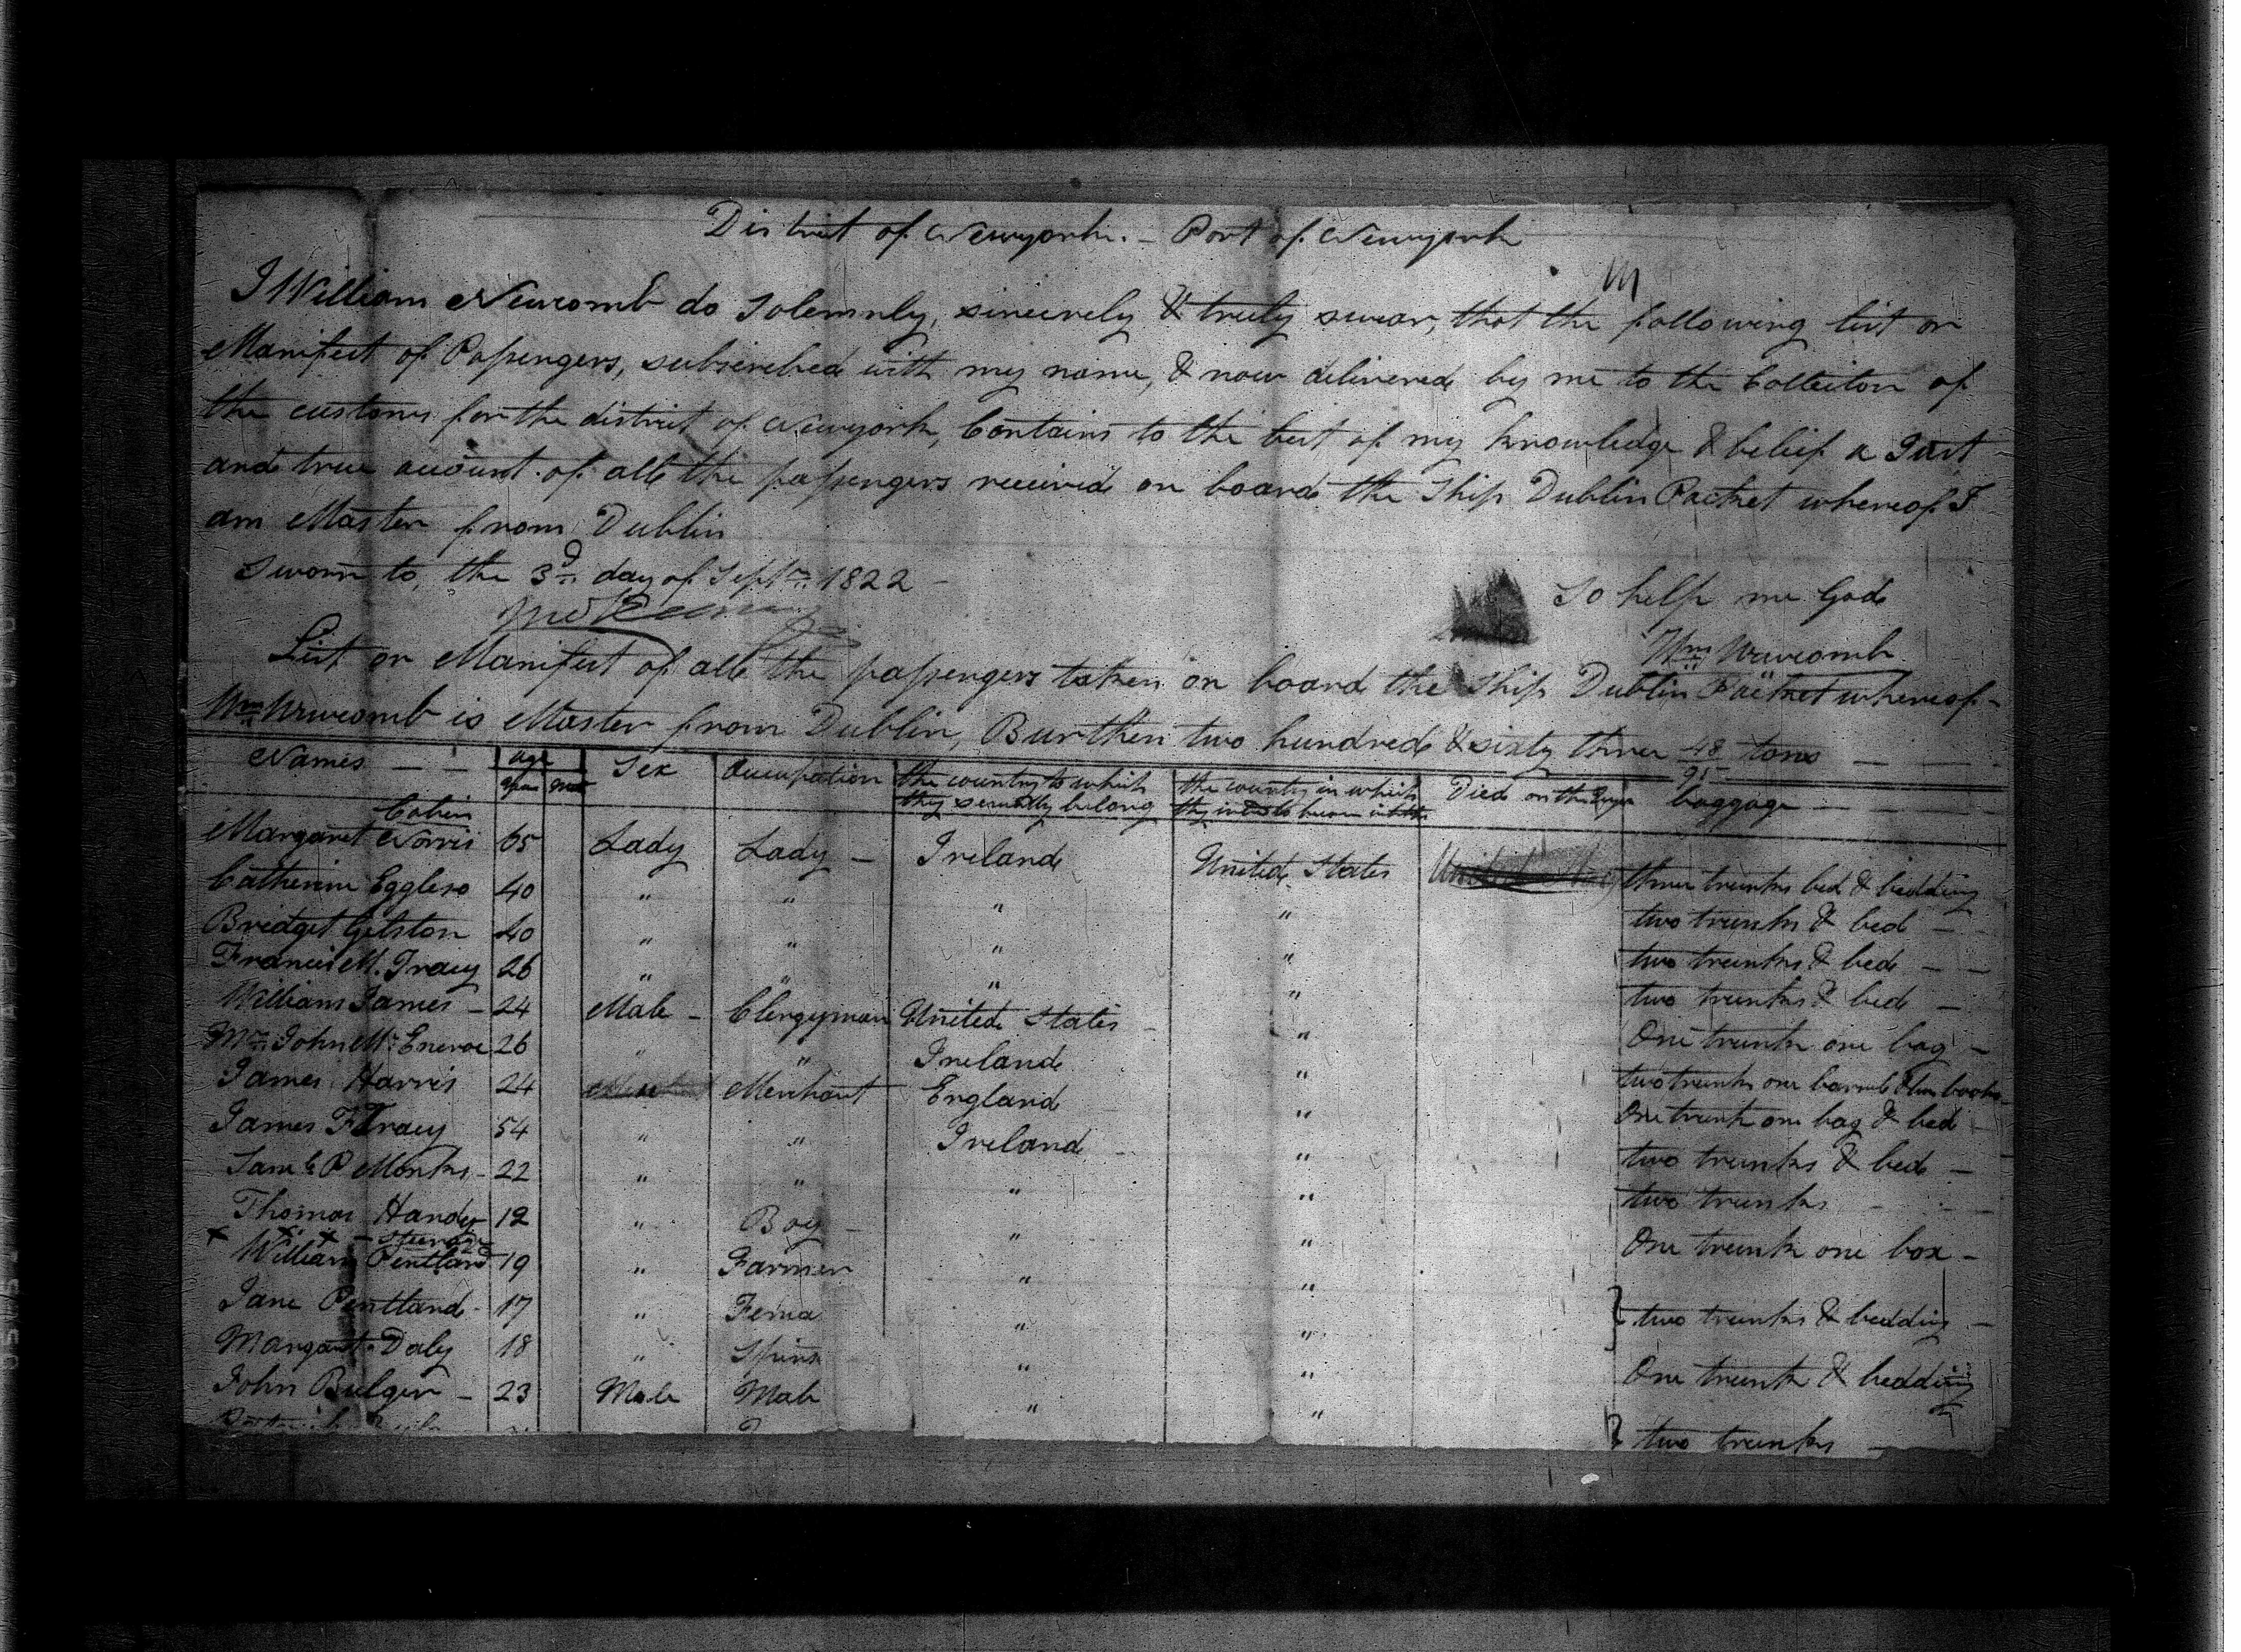 District of Newyork. – Port of Newyork
I William Newcomb do Solemnly, sincerely & truly swear, that the following list or
Manifest of Passengers, subscribed with my name, & now delivered by me to the Collector of
the customs for the district of Newyork, Contains to the best of my knowledge & belief a Just
and true account of all the passengers received on board the Ship Dublin Packet whereof I
am Master from Dublin
Sworn to, the 3d day of Septr 1822 –
So help me God
Wm Newcomb
List or Manifest of all the passengers taken on board the Ship Dublin Packet whereof –
Wm Newcomb is Master from Dublin, Burthen two hundred & sixty three 48/95 tons
Names Age Sex Occupation the country to which they severally belong the country in which they intend to become Died on the baggage
Cabin
Margaret Norris 65 Lady Lady – Ireland United States three trunks bed & bedding
Catherine 40 " " " " two trunks & bed –
Bridget Gilston 40 " " " " two trunks & bed – –
Francis M. Tracy 26 " " " " two trunks & bed –
William James – 24 Male – Clergyman United States – " One trunk one bag –
John Mc 26 " " Ireland " two trunks one barrel
James Harris 24 Merchant England " One trunk one bag & bed –
James F Tracy 54 " " Ireland " two trunks & bed –
Saml P Monks – 22 " " " " two trunks
Thomas Handy 12 " Boy – " " One trunk one box –
x x x – Steerage
William Pentland 19 " Farmer " " } two trunks & bedding –
Jane Pentland – 17 " Fema " "
Margaret Daly 18 " Spins " " One trunk & bedding
John Bulger – 23 Male Male " " } two trunks –